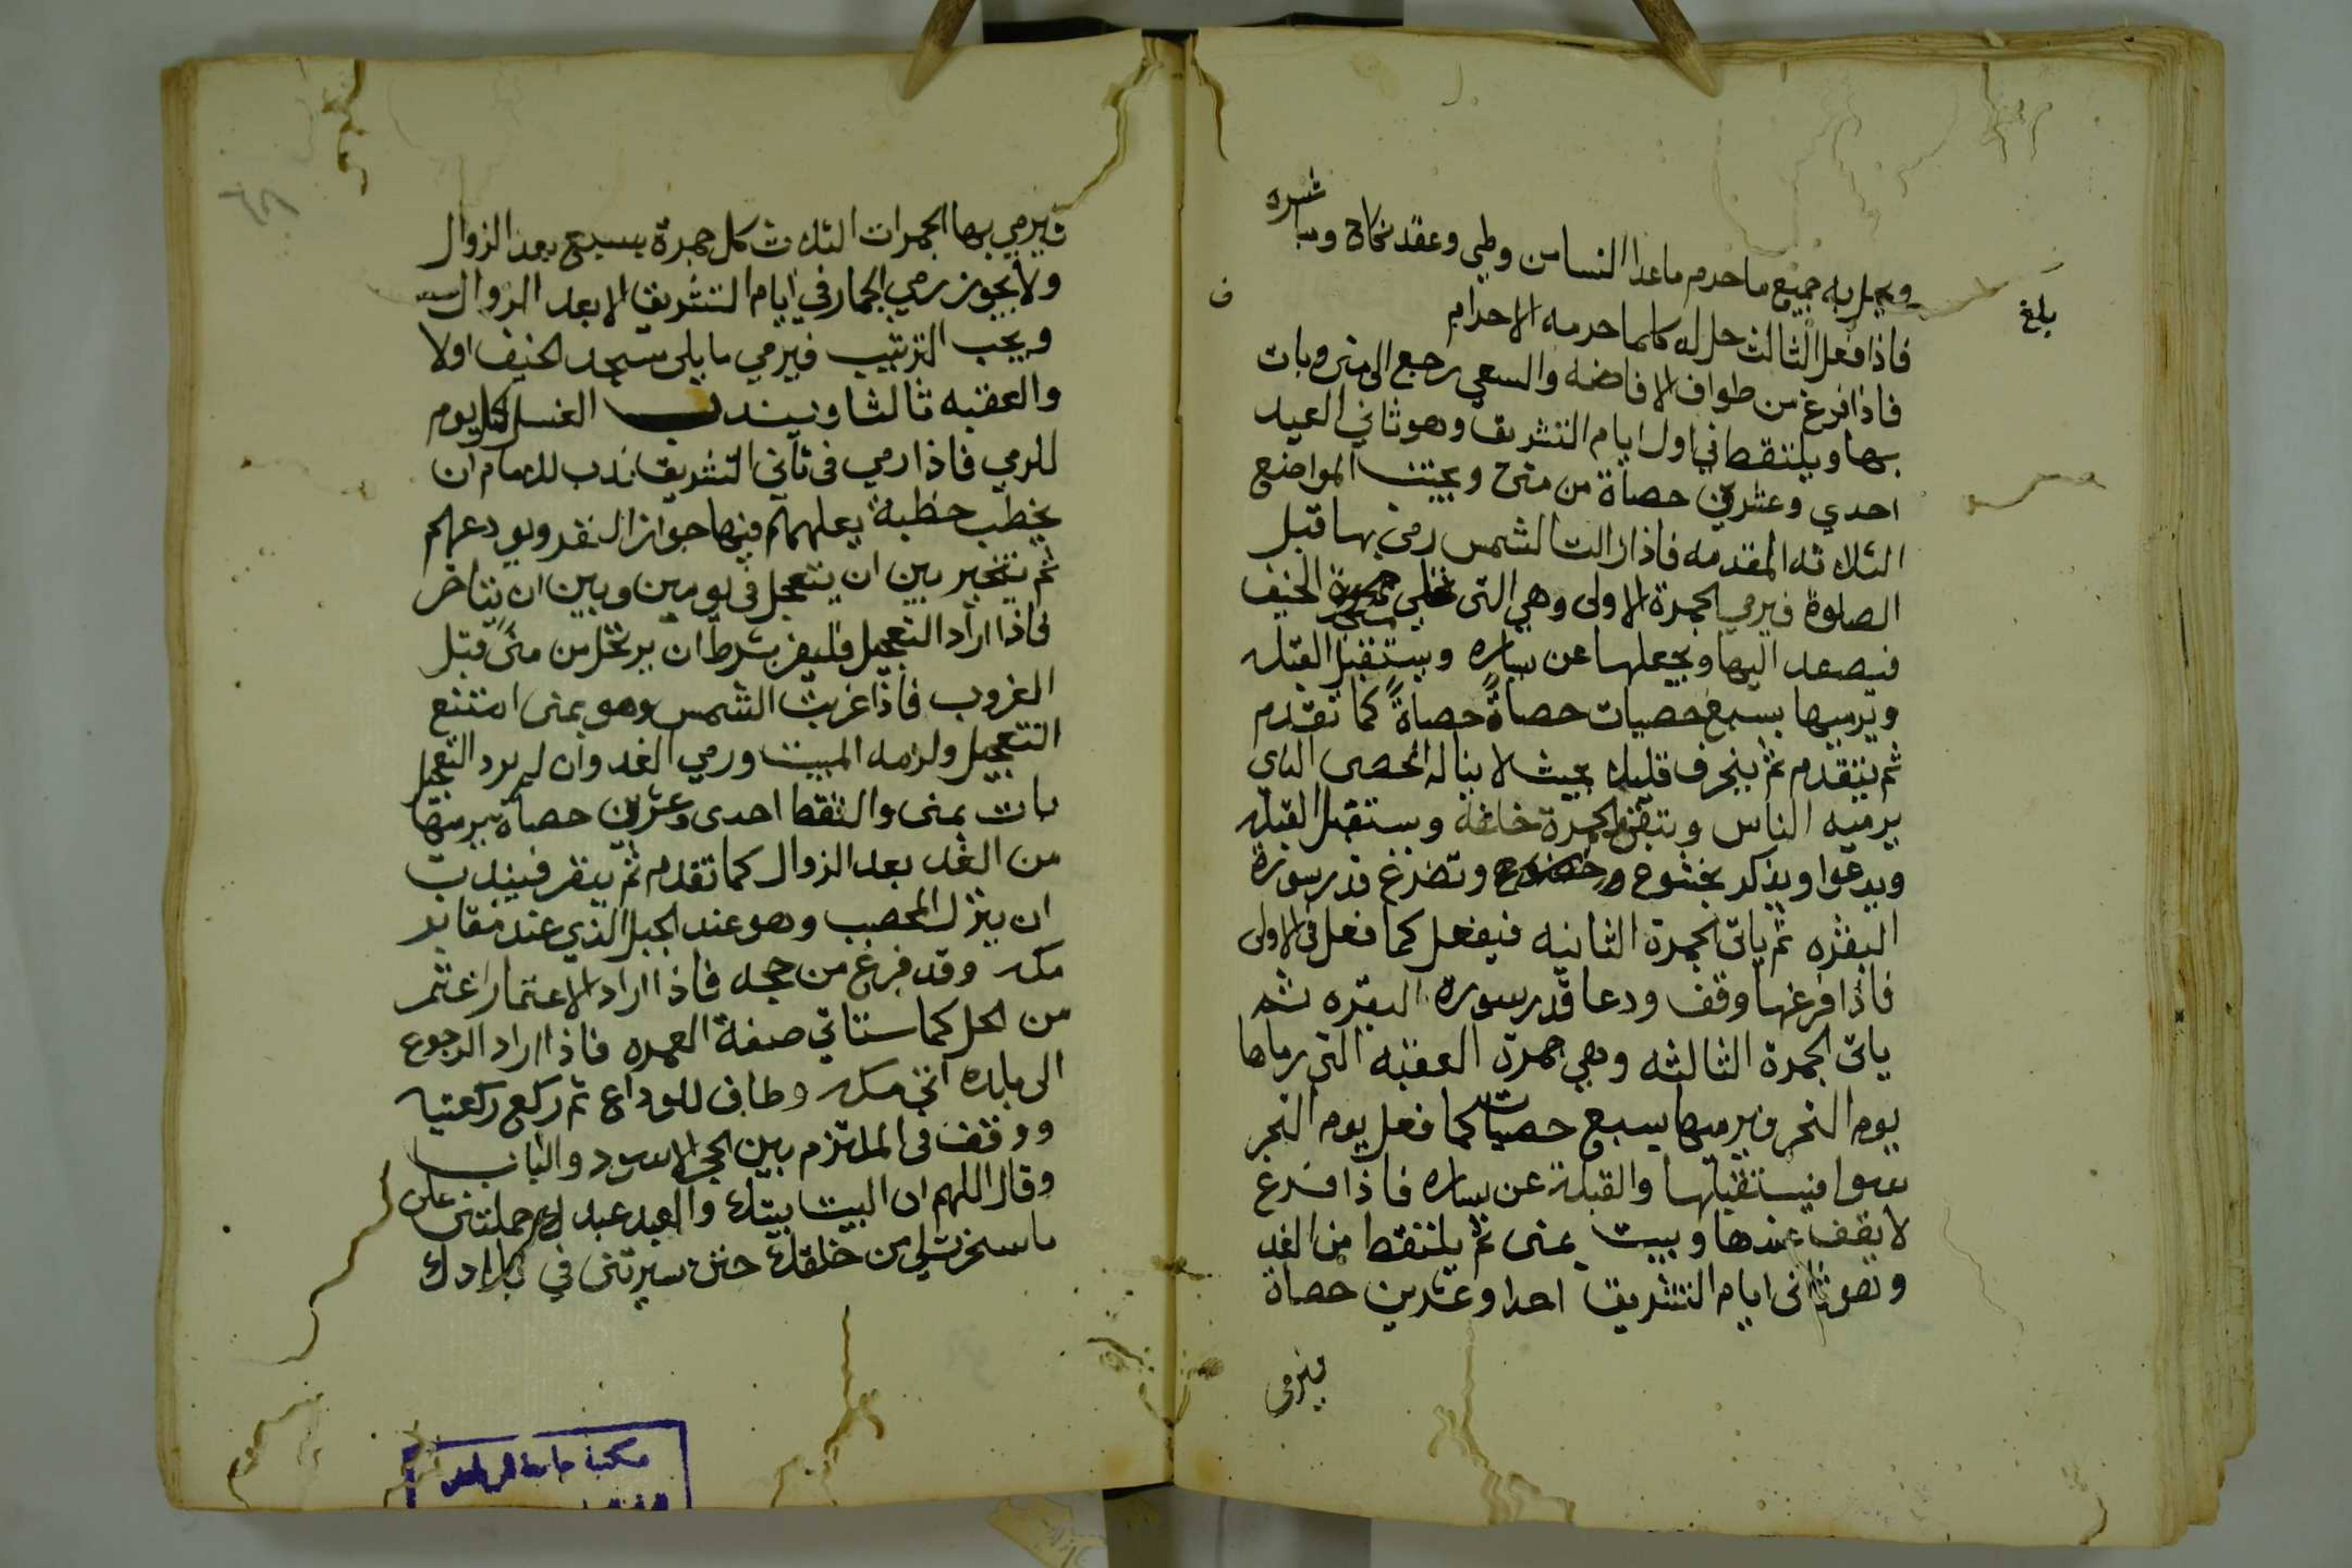 ويحل به جميع ما حرم ما عدا النسا من وطي وعقد نكاح ومباشره
بلغ
فاذا فعل الثالث حل له كلما حرمه الاحرام
فاذا فرغ من طواف الافاضه والسعي رجع الى منى وبات
بها ويلتقط في اول ايام التشريق وهو ثاني العيد
احدي وعشرين حصاة من منى ويجتنب المواضع
الثلاثه المقدمه فاذا زالت الشمس رمى بها قبل
الصلوة فيرمي الجمرة الاولى وهي التي تلي مسجد الخيف
فيصعد اليها ويجعلها عن يساره ويستقبل القبله
ويرميها بسبع حصيات حصاةً حصاةً كما تقدم
ثم يتقدم ثم ينحرف قليلا بحيث لا يناله الحصى الذي
يرميه الناس وتبقى الجمرة خلفه ويستقبل القبله
ويدعوا ويذكر بخشوع وخضوع وتضرع قدر سورة
البقره ثم ياتي الجمرة الثانيه فيفعل كما فعل في الاولى
فاذا فرغها وقف ودعا قدر سورة البقره ثم
ياتي الجمرة الثالثه وهي جمرة العقبه التي رماها
يوم النحر فيرميها بسبع حصيات كما فعل يوم النحر
سوا فيستقبلها والقبلة عن يساره فاذا فرغ
لا يقف عندها ويبيت بمنى ثم يلتقط من الغد
وهو ثاني ايام التشريق احدا وعشرين حصاة
فيرمي
فيرمي بها الجمرات الثلاث كل جمرة بسبع بعد الزوال
ولا يجوز رمي الجمار في ايام التشريق الا بعد الزوال
ويجب الترتيب فيرمي ما يلي مسجد الخيف اولا
والعقبه ثالثا ويندب الغسل كل يوم
للرمي فاذا رمي في ثاني التشريق ندب للامام ان
يخطب خطبة يعلمهم فيها جواز النفر ويودعهم
ثم يتخير بين ان يتعجل في يومين وبين ان يتاخر
فاذا اراد التعجيل فلينفر بشرط ان يرتحل من منى قبل
الغروب فاذا غربت الشمس وهو بمنى امتنع
التعجيل ولزمه المبيت ورمي الغد وان لم يرد التعجل
بات بمنى والتقط احدى وعشرين حصاة يرميها
من الغد بعد الزوال كما تقدم ثم ينفر فيندب
ان ينزل المحصب وهو عند الجبل الذي عند مقابر
مكه وقد فرغ من حجه فاذا اراد الاعتمار اعتمر
من الحل كما ستاتي صفة العمره فاذا اراد الرجوع
الى بلده اتي مكه وطاف للوداع ثم ركع ركعتيه
ووقف في الملتزم بين الحجر الاسود والباب
وقال اللهم ان البيت بيتك والعبد عبدك حملتني على
ما سخرت لي من خلقك حتى سيرتني في بلادك
مكتبة جامعة الرياض